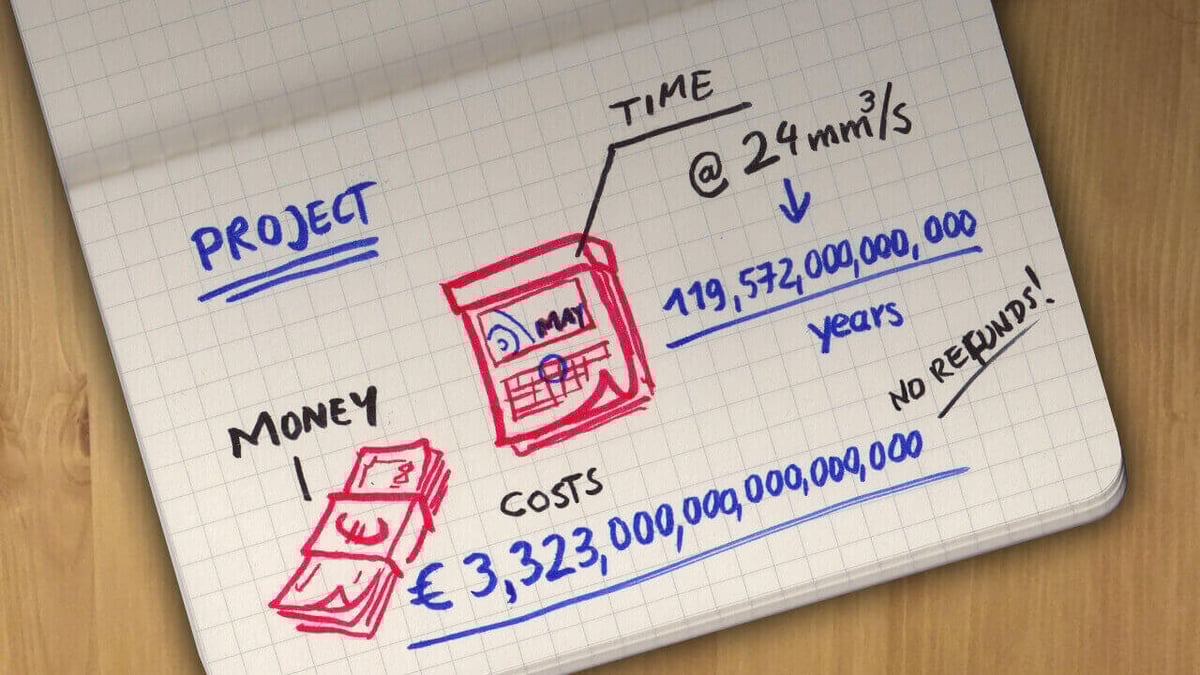 PROJECT
TIME
@ 24 mm³/s
119,572,000,000,000
years
MAY
NO REFUNDS!
MONEY
€
COSTS
€ 3,323,000,000,000,000,000